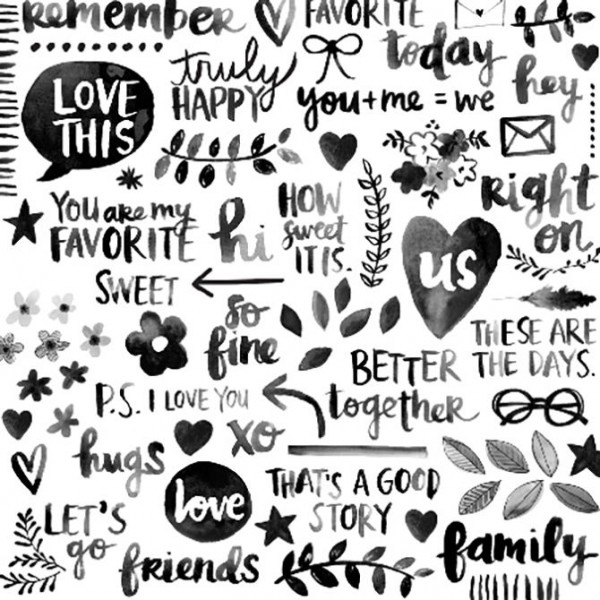 remember
FAVORITE
today
hey
LOVE
THIS
truly
HAPPY
you+me = we
Right
on
You are my
FAVORITE
hi
HOW
sweet
IT IS.
us
SWEET
so
fine
THESE ARE
THE DAYS.
BETTER
together
P.S. I LOVE YOU
xo
hugs
love
THAT'S A GOOD
STORY
LET'S
go
friends
family